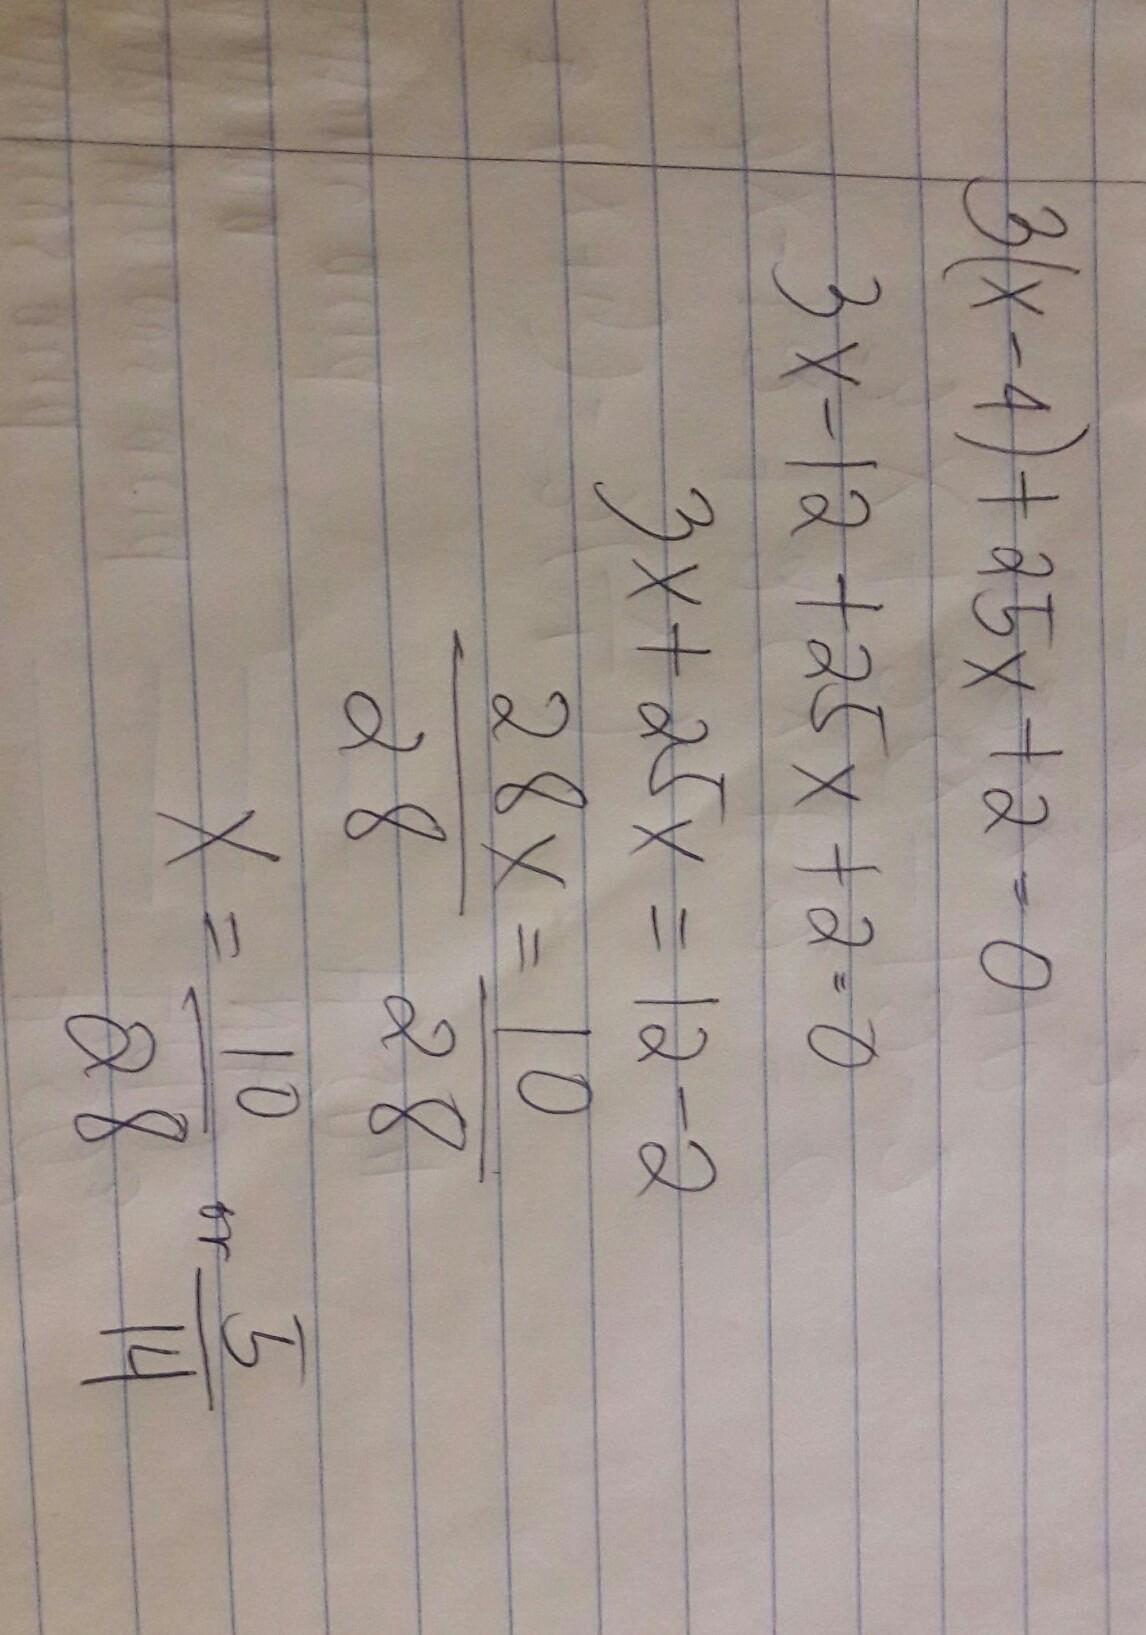 3(x-4)+25x+2=0
3x-12+25x+2=0
3x+25x=12-2
28x=10
28 28
x=10/28 or 5/14